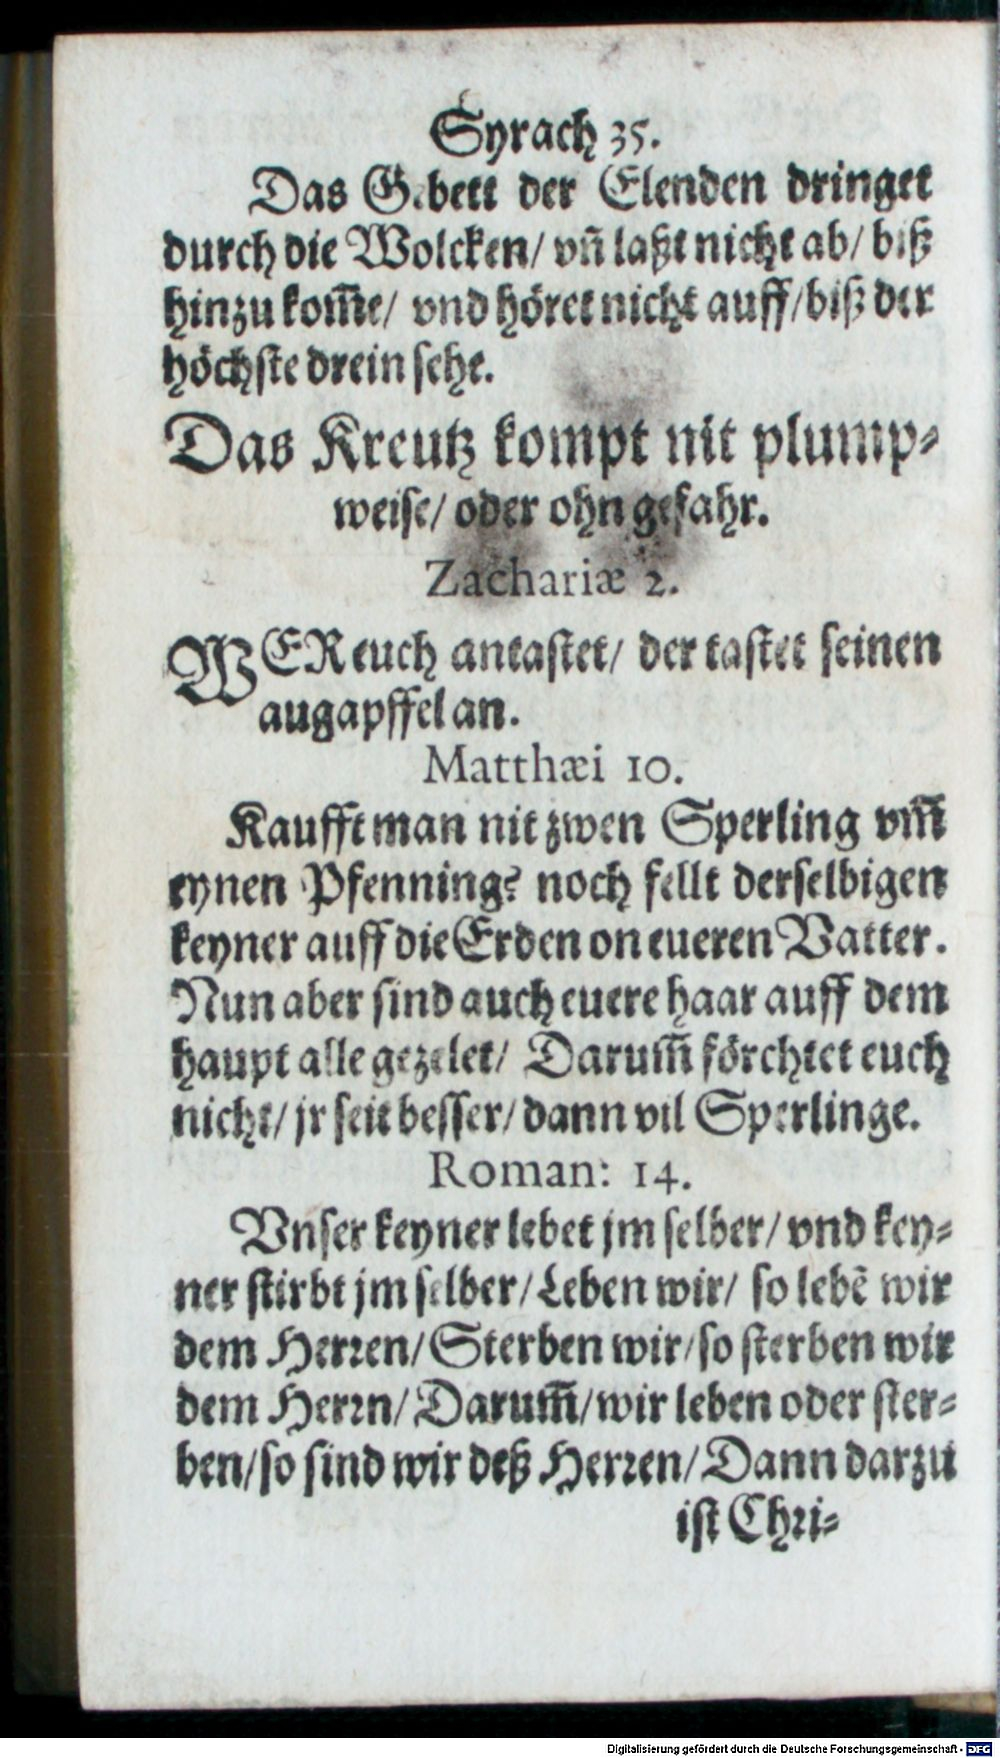 Syrach 35.
Das Gebett der Elenden dringet
durch die Wolcken/ vñ laßt nicht ab/ biß
hinzu kom̃e/ vnd höret nicht auff/ biß der
höchste drein sehe.
Das Kreutz kompt nit plump-
weise/ oder ohn gefahr.
Zachariæ 2.
WER euch antastet/ der tastet seinen
augapffel an.
Matthæi 10.
Kaufft man nit zwen Sperling vm̃
eynen Pfenning? noch fellt derselbigen
keyner auff die Erden on eueren Vatter.
Nun aber sind auch euere haar auff dem
haupt alle gezelet/ Darum̃ förchtet euch
nicht/ jr seit besser/ dann vil Sperlinge.
Roman: 14.
Vnser keyner lebet jm selber/ vnd key-
ner stirbt jm selber/ Leben wir/ so lebẽ wir
dem Herren/ Sterben wir/ so sterben wir
dem Herrn/ Darum̃/ wir leben oder ster-
ben/ so sind wir deß Herren/ Dann darzu
ist Chri-
Digitalisierung gefördert durch die Deutsche Forschungsgemeinschaft - DFG